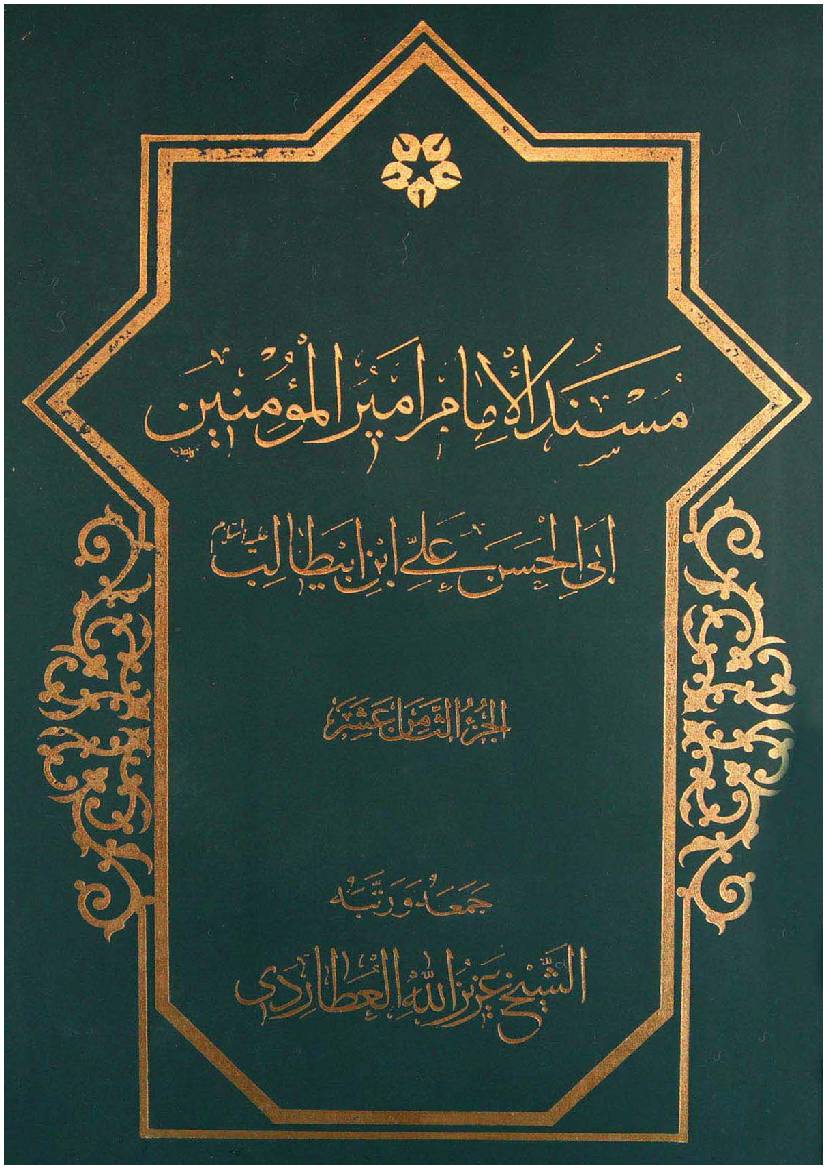 مُسْنَدُ الْإِمَامِ أَمِيرِ الْمُؤْمِنِينَ
أَبِي الْحَسَنِ عَلِيِّ ابْنِ أَبِيطَالِبٍ عليه السلام
الجُزْءُ الثَّامِنُ عَشَرَ
جَمَعَهُ وَرَتَّبَهُ
الشَّيْخُ عَزِيزُ اللهِ الْعُطَارِدِي